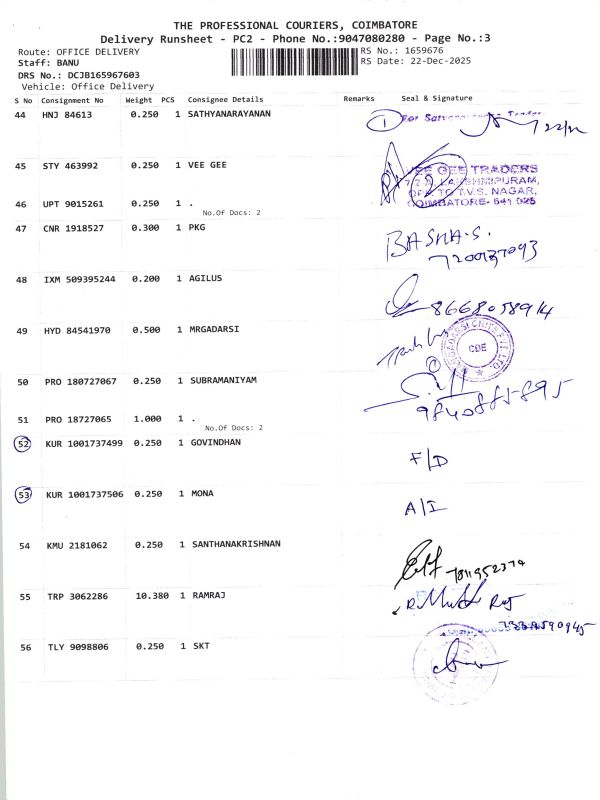 THE PROFESSIONAL COURIERS, COIMBATORE
Delivery Runsheet - PC2 - Phone No.:9047080280 - Page No.:3
Route: OFFICE DELIVERY
RS No.: 1659676
Staff: BANU
RS Date: 22-Dec-2025
DRS No.: DCJB165967603
Vehicle: Office Delivery
S No Consignment No Weight PCS Consignee Details Remarks Seal & Signature
44 HNJ 84613 0.250 1 SATHYANARAYANAN
1 For
22/12
45 STY 463992 0.250 1 VEE GEE
VEE GEE TRADERS
LAKSHMIPURAM,
T.V.S. NAGAR,
COIMBATORE- 641 025
46 UPT 9015261 0.250 1 .
No.Of Docs: 2
47 CNR 1918527 0.300 1 PKG
BASHA.S.
7200137093
48 IXM 509395244 0.200 1 AGILUS
8668058914
49 HYD 84541970 0.500 1 MRGADARSI
MARGADARSI CHITS PVT. LTD.
CBE
50 PRO 180727067 0.250 1 SUBRAMANIYAM
9840885895
51 PRO 18727065 1.000 1 .
No.Of Docs: 2
52 KUR 1001737499 0.250 1 GOVINDHAN
F/D
53 KUR 1001737506 0.250 1 MONA
A/I
54 KMU 2181062 0.250 1 SANTHANAKRISHNAN
55 TRP 3062286 10.380 1 RAMRAJ
56 TLY 9098806 0.250 1 SKT